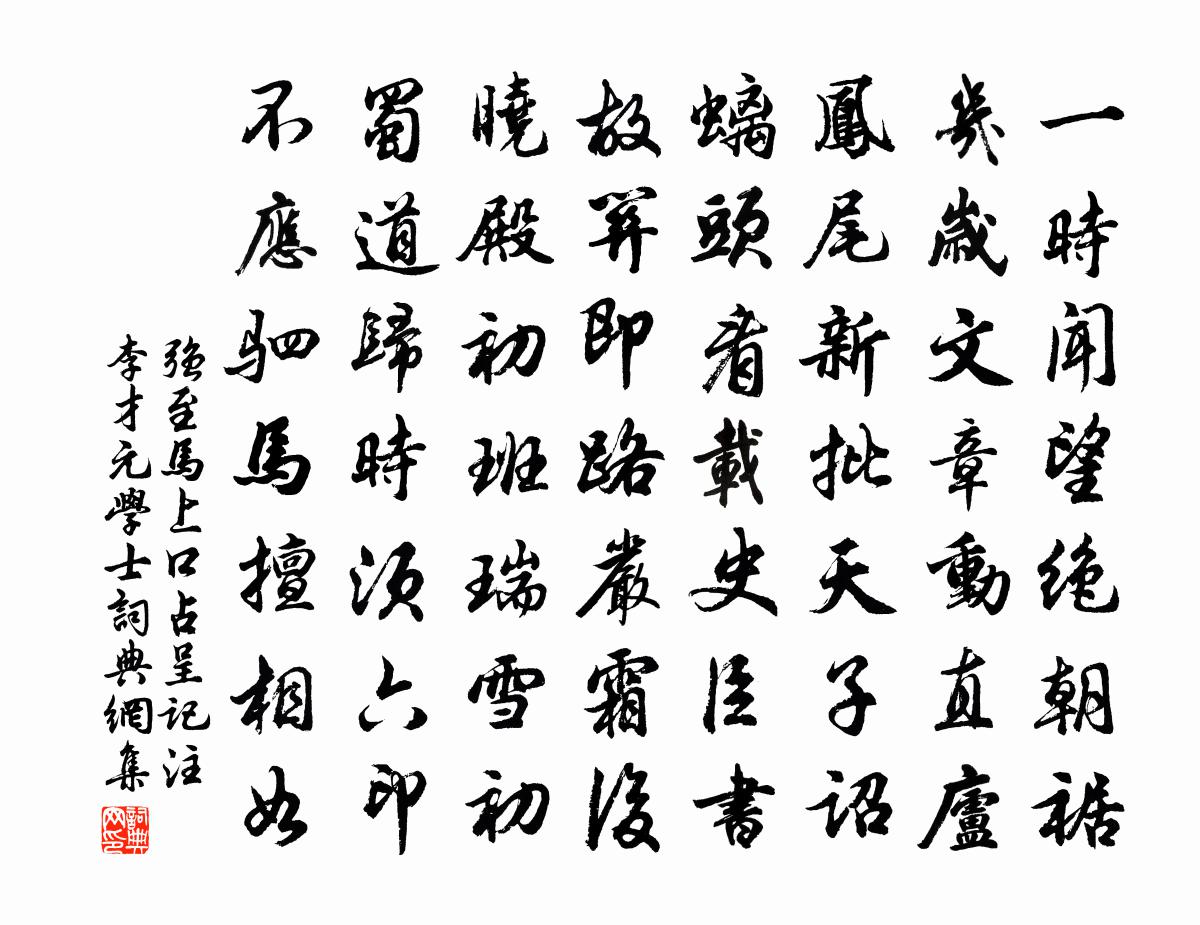 一時聞望絶朝裾
幾歲文章動直廬
鳳尾新批天子詔
螭頭看載史臣書
故即路嚴霜後
曉殿初班瑞雪初
蜀道歸時須六印
不應駟馬擅相如
強至馬上口占呈記注
李才元學士詞典網集
詞典网印